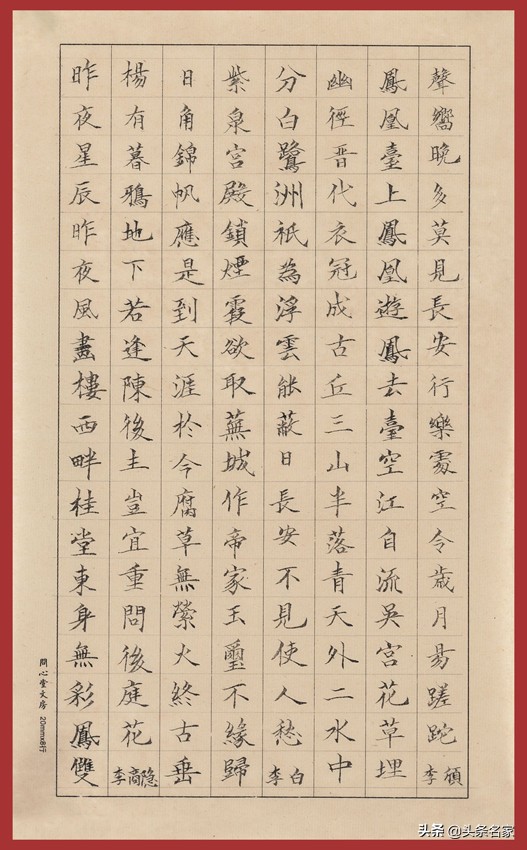 聲嚮晚多莫見長安行樂處空令歲月易蹉跎 李頎
鳳凰臺上鳳凰遊鳳去臺空江自流吳宮花草埋
幽徑晋代衣冠成古丘三山半落青天外二水中
分白鷺洲祇為浮雲能蔽日長安不見使人愁 李白
紫泉宮殿鎖煙霞欲取蕪城作帝家玉璽不緣歸
日角錦帆應是到天涯於今腐草無螢火終古垂
楊有暮鴉地下若逢陳後主豈宜重問後庭花 李商隐
昨夜星辰昨夜風畫樓西畔桂堂東身無彩鳳雙
問心堂文房 20mmx8行
头条 @头条名家